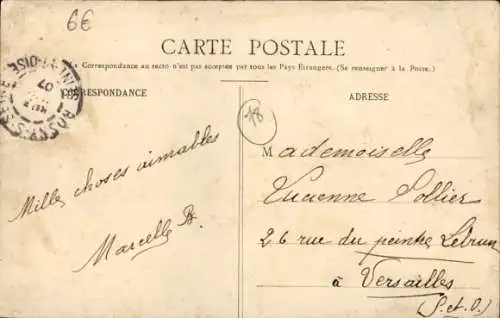 6€
CARTE POSTALE
La Correspondance au recto n'est pas acceptée par tous les Pays Étrangers. (Se renseigner à la Poste.)
CORRESPONDANCE
ADRESSE
78
Mademoiselle
Lucienne Collier
26 rue du peintre Lebrun
à Versailles
(S.-et-O.)
Mille choses aimables
Marcelle B.
ROSNY-S-SEINE
07